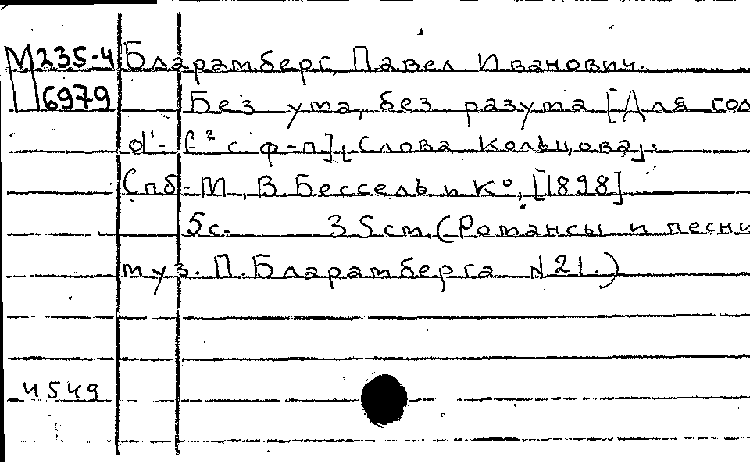 М 235-4 Бларамберг, Павел Иванович.
П 6979 Без ума, без разума. [Для гол
d¹-f² с ф-п], [Слова Кольцова].
Спб-М, В. Бессель и К°, [1898]
5с. 35см. (Романсы и песни
муз. П. Бларамберга №21.)
4549